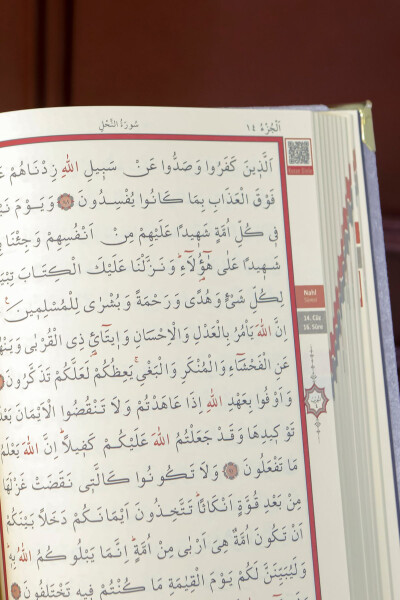 اَلْجُزْءُ ١٤
سُورَةُ النَّحْلِ
اَلَّذِينَ كَفَرُوا وَصَدُّوا عَنْ سَبِيلِ اللّٰهِ زِدْنَاهُمْ
فَوْقَ الْعَذَابِ بِمَا كَانُوا يُفْسِدُونَ ﴿٨٨﴾ وَيَوْمَ
فِى كُلِّ اُمَّةٍ شَهِيدًا عَلَيْهِمْ مِنْ اَنْفُسِهِمْ وَجِئْنَا
شَهِيدًا عَلٰى هٰٓؤُ۬لَٓاءِ وَنَزَّلْنَا عَلَيْكَ الْكِتَابَ
لِكُلِّ شَىْءٍ وَهُدًى وَرَحْمَةً وَبُشْرٰى لِلْمُسْلِمِينَ
اِنَّ اللّٰهَ يَاْمُرُ بِالْعَدْلِ وَالْاِحْسَانِ وَا۪يتَٓائِ ذِى الْقُرْبٰى
عَنِ الْفَحْشَٓاءِ وَالْمُنْكَرِ وَالْبَغْىِ يَعِظُكُمْ لَعَلَّكُمْ تَذَكَّرُونَ
وَاَوْفُوا بِعَهْدِ اللّٰهِ اِذَا عَاهَدْتُمْ وَلَا تَنْقُضُوا الْاَيْمَانَ
تَوْكِيدِهَا وَقَدْ جَعَلْتُمُ اللّٰهَ عَلَيْكُمْ كَفِيلًا اِنَّ اللّٰهَ
مَا تَفْعَلُونَ ﴿٩١﴾ وَلَا تَكُونُوا كَالَّتِى نَقَضَتْ غَزْلَهَا
مِنْ بَعْدِ قُوَّةٍ اَنْكَاثًا تَتَّخِذُونَ اَيْمَانَكُمْ دَخَلًا بَيْنَكُمْ
اَنْ تَكُونَ اُمَّةٌ هِىَ اَرْبٰى مِنْ اُمَّةٍ اِنَّمَا يَبْلُوكُمُ اللّٰهُ بِه۪
وَلَيُبَيِّنَنَّ لَكُمْ يَوْمَ الْقِيٰمَةِ مَا كُنْتُمْ فِيهِ تَخْتَلِفُونَ
Nahl
Sûresi
14. Cüz
16. Sûre